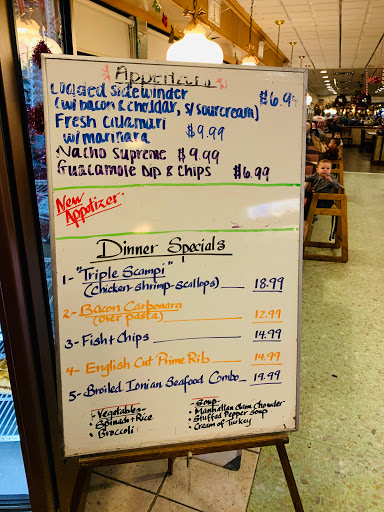 Appetizers
Loaded Sidewinder $6.99
(w/ bacon & cheddar, s/ sourcream)
Fresh Calamari
w/ marinara $9.99
Nacho Supreme $9.99
Guacamole Dip & Chips $6.99
New
Appetizer:
Dinner Specials
1- "Triple Scampi"
(Chicken-shrimp-scallops) 18.99
2- Bacon Carbonara
(over pasta) 12.99
3- Fish + Chips 14.99
4- English Cut Prime Rib 14.99
5- Broiled Ionian Seafood Combo 19.99
Vegetables
• Spinach + Rice
• Broccoli
Soup
• Manhattan Clam Chowder
• Stuffed Pepper Soup
• Cream of Turkey